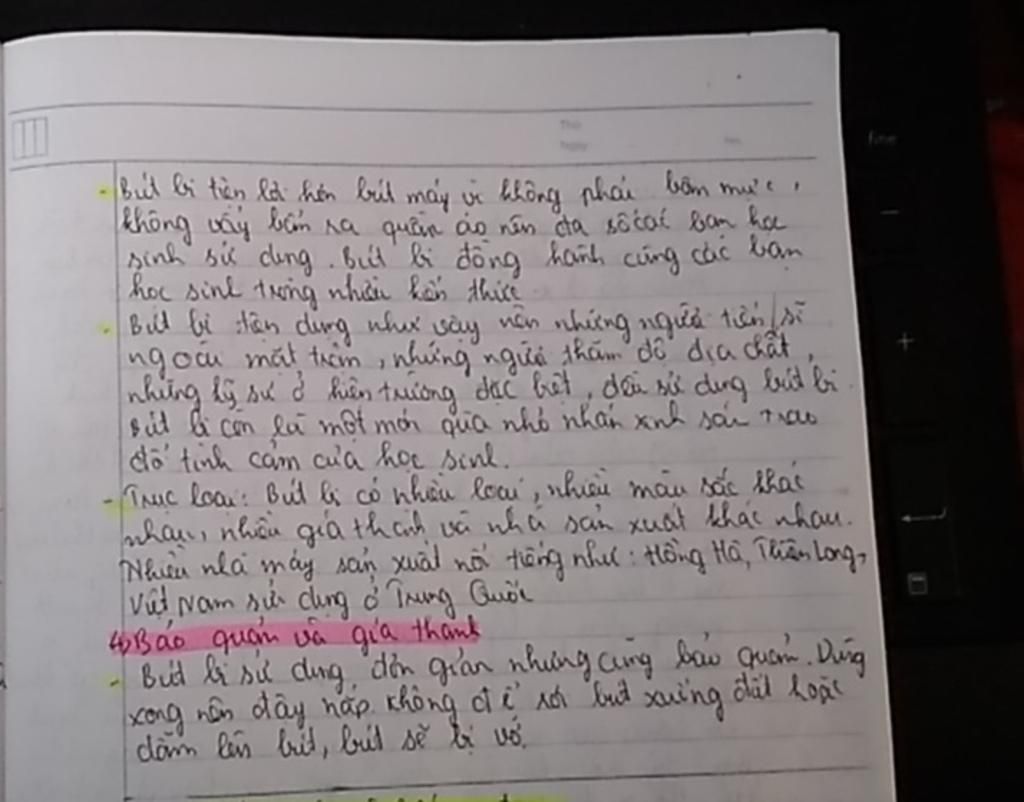 - Bút bi tiện lợi hơn bút máy vì không phải bơm mực,
không vấy bẩn ra quần áo nên đa số các bạn học
sinh sử dụng. Bút bi đồng hành cùng các bạn
học sinh trong nhiều kiến thức
- Bút bi tiện dụng như vậy nên những người tiến sĩ
ngoài mặt trận, những người thăm dò địa chất,
những kỹ sư ở hiện trường đặc biệt, đều sử dụng bút bi.
Bút bi còn là một món quà nhỏ nhắn xinh xắn trao
đổ tình cảm của học sinh.
- Trục loại: Bút bi có nhiều loại, nhiều màu sắc khác
nhau, nhiều giá thành và nhà sản xuất khác nhau.
Nhiều nhà máy sản xuất nổi tiếng như: Hồng Hà, Thiên Long,
Việt Nam sử dụng ở Trung Quốc
4) Bảo quản và giá thành
- Bút bi sử dụng đơn giản nhưng cũng bảo quản. Dùng
xong nên đậy nắp không để rơi bút xuống đất hoặc
dẫm lên bút, bút sẽ bị vỡ.